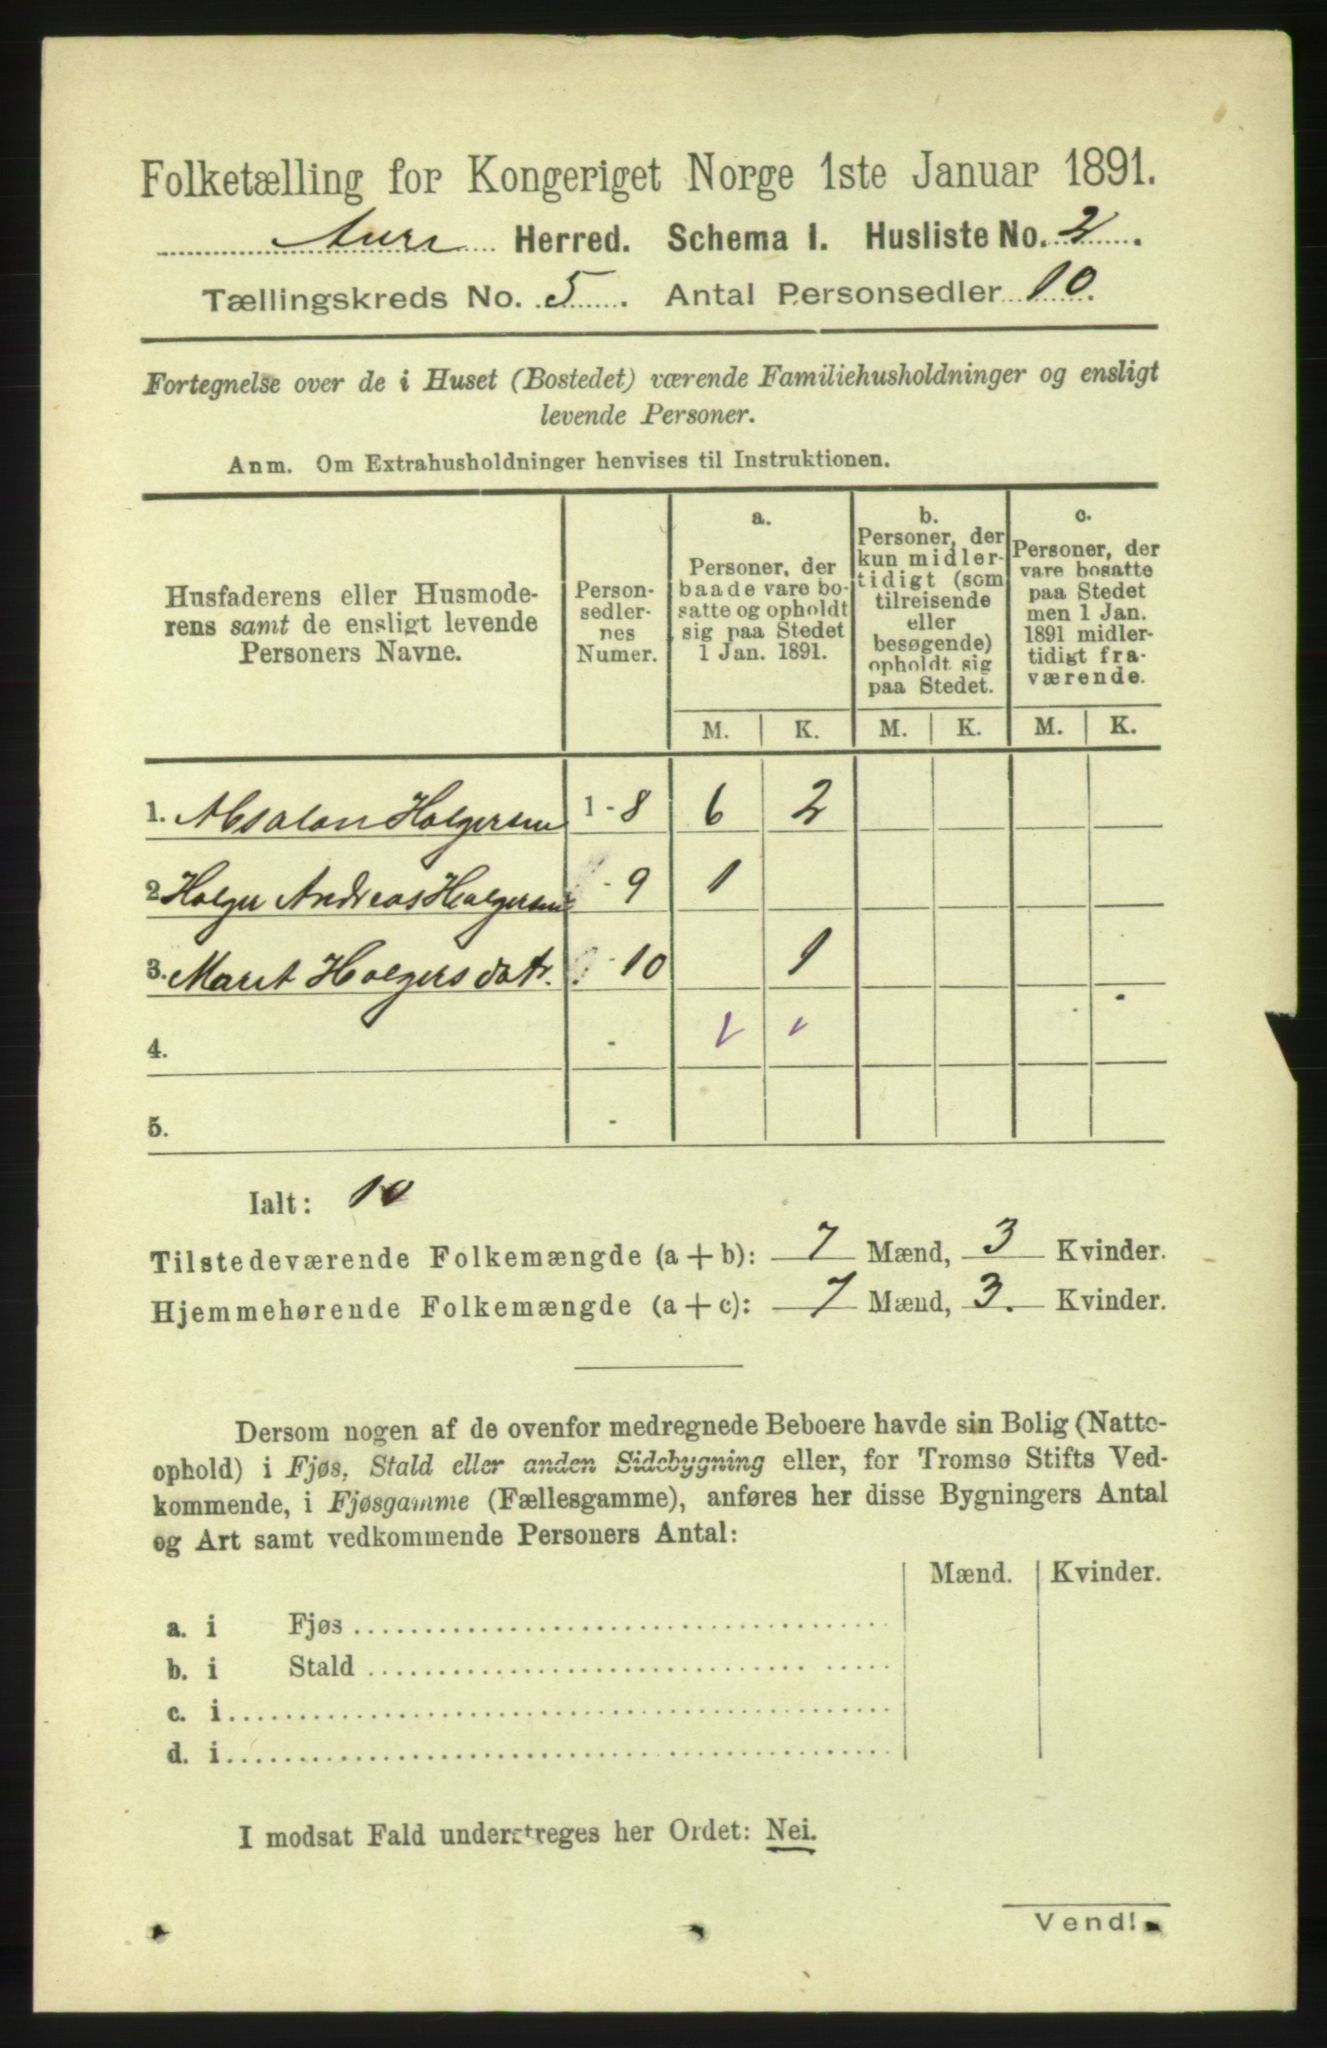 Folketælling for Kongeriget Norge 1ste Januar 1891.
Aure Herred. Schema I. Husliste No. 2.
Tællingskreds No. 5. Antal Personsedler 10.
Fortegnelse over de i Huset (Bostedet) værende Familiehusholdninger og ensligt
levende Personer.
Anm. Om Extrahusholdninger henvises til Instruktionen.
Husfaderens eller Husmode-
rens samt de ensligt levende
Personers Navne.
Person-
sedler-
nes
Numer.
a.
Personer, der
baade vare bo-
satte og opholdt
sig paa Stedet
1 Jan. 1891.
b.
Personer, der
kun midler-
tidigt (som
tilreisende
eller
besøgende)
opholdt sig
paa Stedet.
c.
Personer, der
vare bosatte
paa Stedet
men 1 Jan.
1891 midler-
tidigt fra-
værende.
M. K. M. K. M. K.
1. Absalon Holgersen 1 - 8 6 2
2. Holger Andreas Holgersen - 9 1
3. Marit Holgersdatr. - 10 1
4. -
5. -
Ialt: 10
Tilstedeværende Folkemængde (a + b): 7 Mænd, 3 Kvinder.
Hjemmehørende Folkemængde (a + c): 7 Mænd, 3. Kvinder.
Dersom nogen af de ovenfor medregnede Beboere havde sin Bolig (Natte-
ophold) i Fjøs, Stald eller anden Sidebygning eller, for Tromsø Stifts Ved-
kommende, i Fjøsgamme (Fællesgamme), anføres her disse Bygningers Antal
og Art samt vedkommende Personers Antal:
Mænd. Kvinder.
a. i Fjøs
b. i Stald
c. i
d. i
I modsat Fald understreges her Ordet: Nei.
Vend!